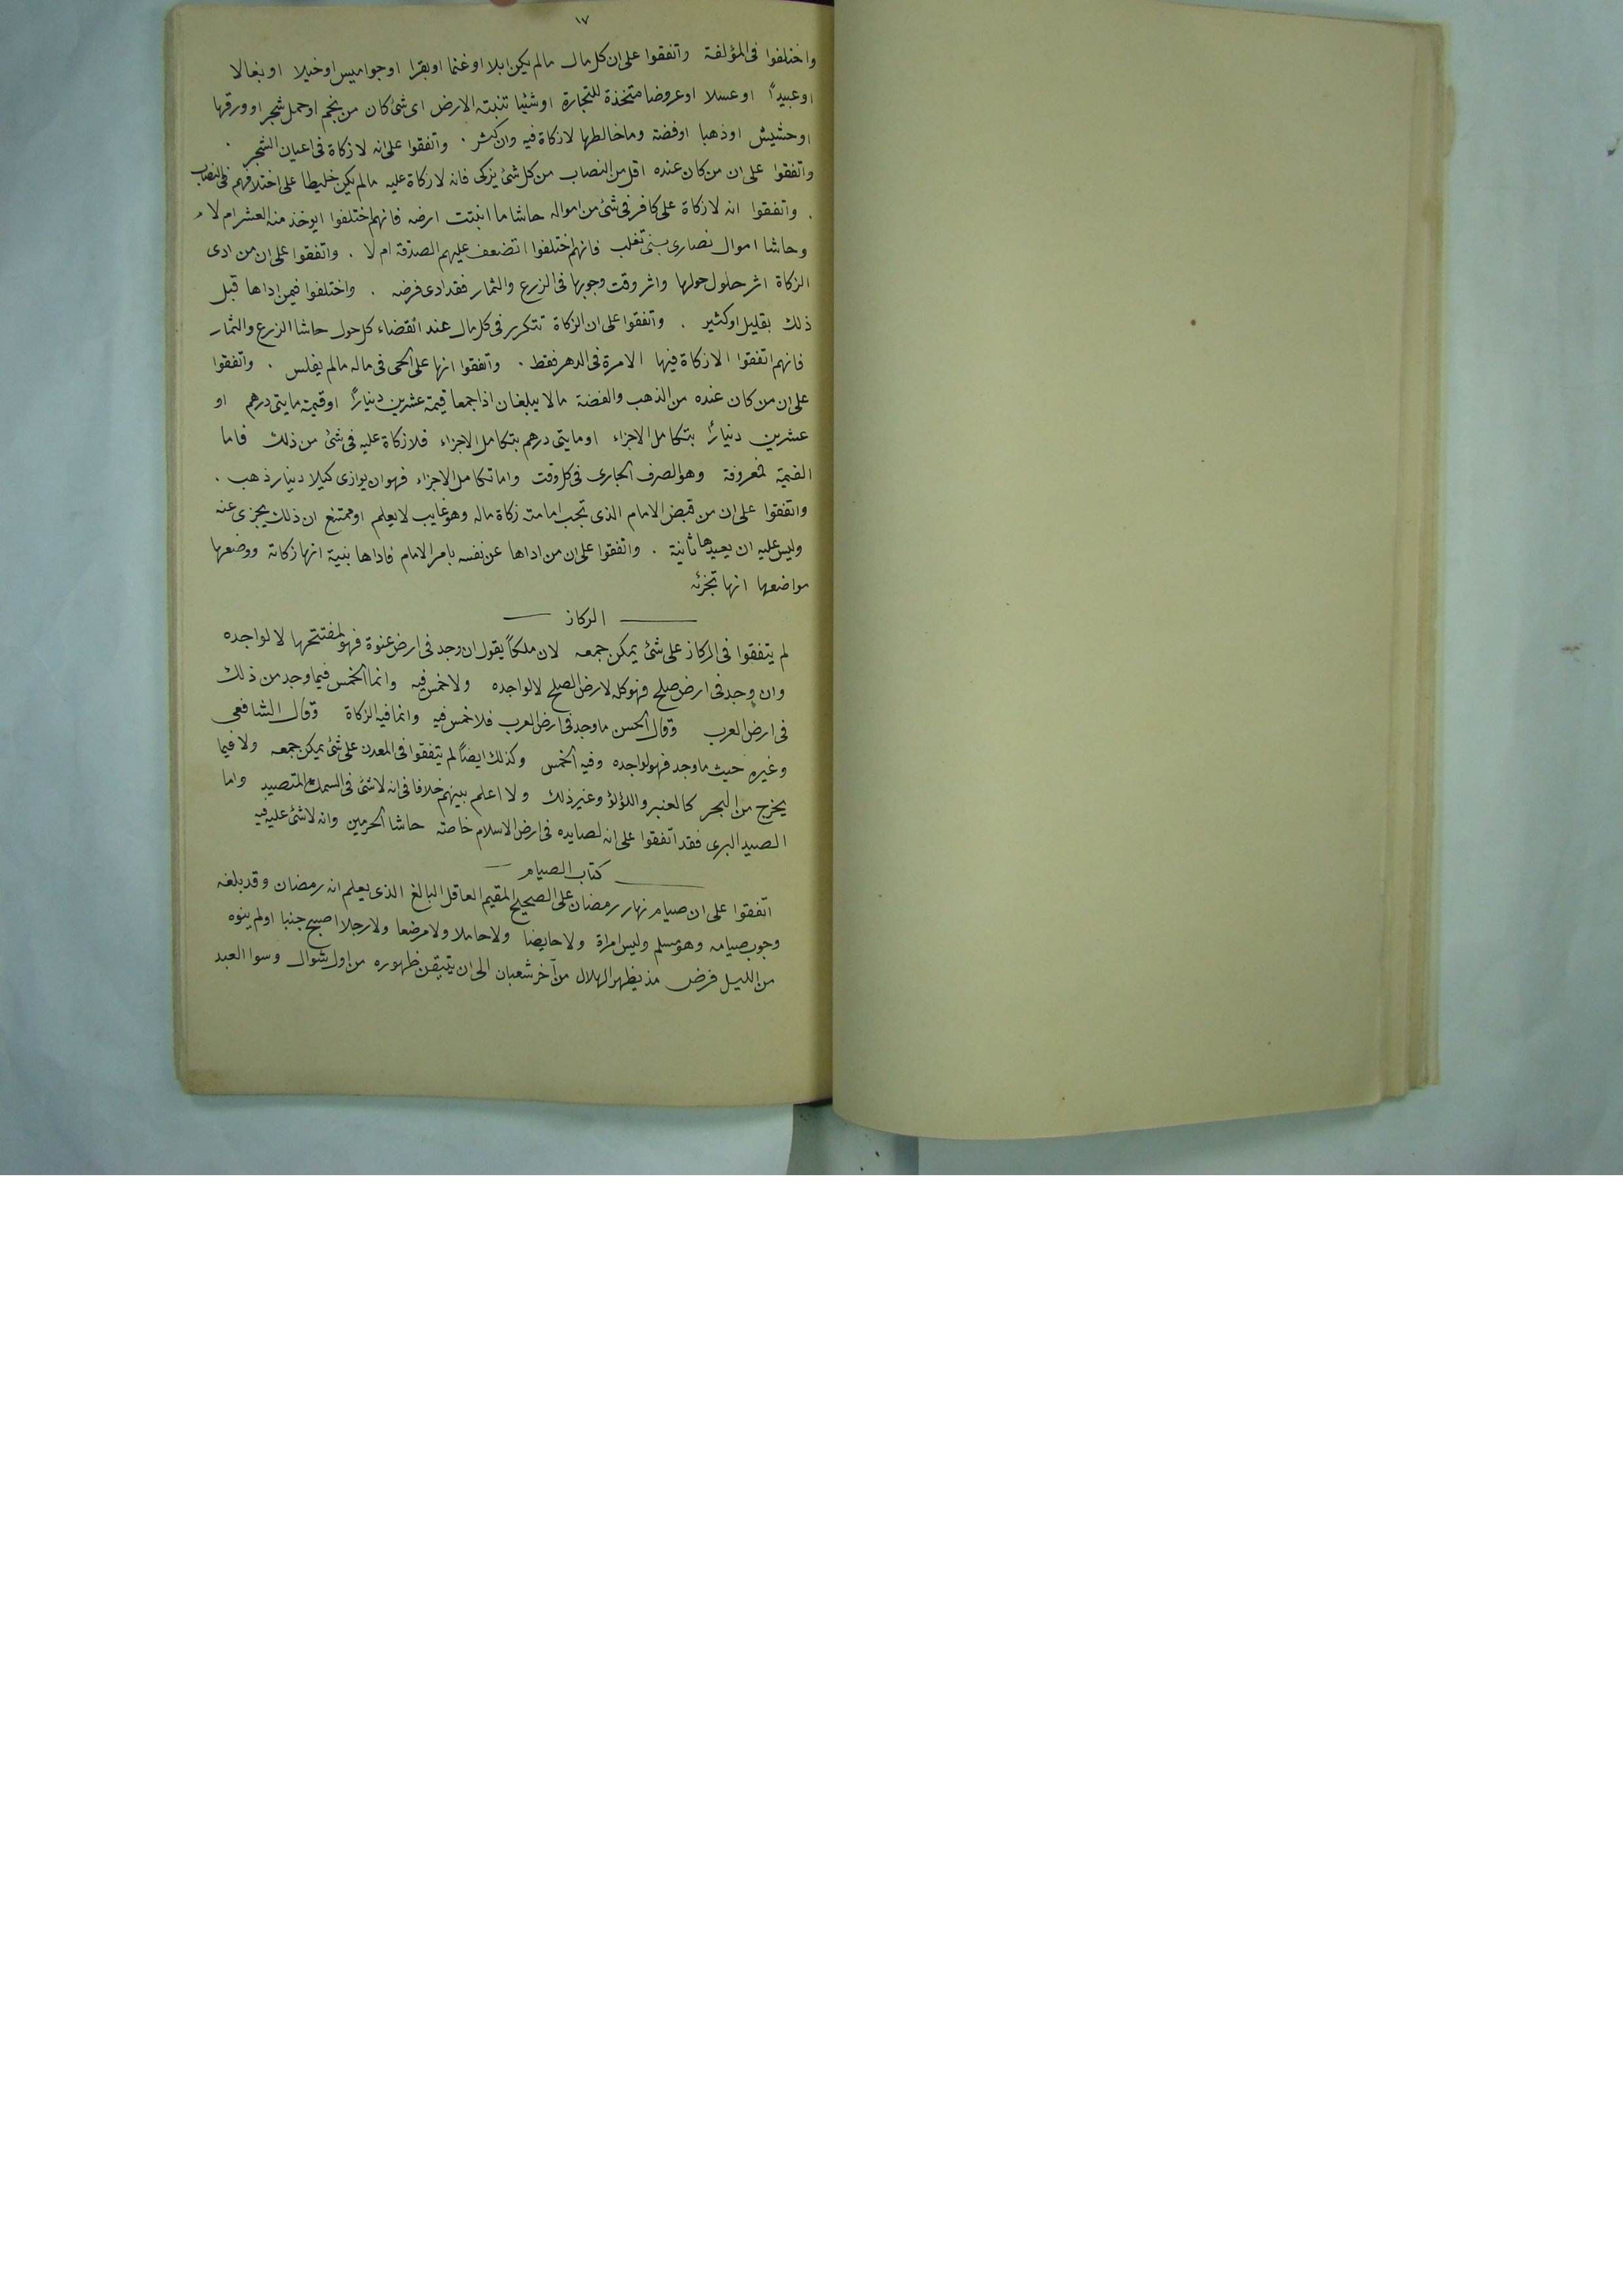 ١٧
واختلفوا فى المؤلفة واتفقوا على ان كل مال مالم يكن ابلا او غنما او بقرا او جواميس او خيلا او بغالا
او عبيداً او عسلا او عروضا متخذة للتجارة او شيئا تنبته الارض اى شئ كان من نجم او حمل شجر او ورقها
او حشيش او ذهبا او فضة وما خالطها لا زكاة فيه وان كثر . واتفقوا على انه لا زكاة فى اعيان الشجر .
واتفقوا على ان من كان عنده اقل من النصاب من كل شئ يزكى فانه لا زكاة عليه مالم يكن خليطا على اختلافهم فى النصاب
. واتفقوا انه لا زكاة على كافر فى شئ من امواله حاشا ما انبتت ارضه فانهم اختلفوا ايوخذ منه العشر ام لا
وحاشا اموال نصارى بنى تغلب فانهم اختلفوا اتضعف عليهم الصدقة ام لا . واتفقوا على ان من ادى
الزكاة اثر حلول حولها واثر وقت وجوبها فى الزرع والثمار فقد ادى فرضه . واختلفوا فيمن اداها قبل
ذلك بقليل او كثير . واتفقوا على ان الزكاة تتكرر فى كل مال عند انقضاء كل حول حاشا الزرع والثمار
فانهم اتفقوا الا زكاة فيها الا مرة فى الدهر فقط . واتفقوا انها على الحى فى ماله مالم يفلس . واتفقوا
على ان من كان عنده من الذهب والفضة مالا يبلغان اذا جمعا قيمة عشرين ديناراً او قيمة مايتى درهم او
عشرين ديناراً بتكامل الاجزاء او مايتى درهم بتكامل الاجزاء فلا زكاة عليه فى شئ من ذلك فاما
القيمة فمعروفة وهو الصرف الجارى فى كل وقت واما تكامل الاجزاء فهو ان يوازى كيلا دينار ذهب .
واتفقوا على ان من قبض الامام الذى تجب امامته زكاة ماله وهو غايب لا يعلم او ممتنع ان ذلك يجزى عنه
وليس عليه ان يعيدها ثانية . واتفقوا على ان من اداها عن نفسه بامر الامام فاداها بنية انها زكاته ووضعها
مواضعها انها تجزئه
الركاز
لم يتفقوا فى الركاز على شئ يمكن جمعه لان ملكاً يقول ان وجد فى ارض عنوة فهو لمفتتحها لا لواجده
وان وجد فى ارض صلح فهو كله لارض الصلح لا لواجده ولا خمس فيه وانما الخمس فيما وجد من ذلك
فى ارض العرب وقال الحسن ما وجد فى ارض العرب فلا خمس فيه وانما فيه الزكاة وقال الشافعى
وغيره حيث ما وجد فهو لواجده وفيه الخمس وكذلك ايضاً لم يتفقوا فى المعدن على شئ يمكن جمعه ولا فيما
يخرج من البحر كالعنبر واللؤلؤ وغير ذلك ولا اعلم بينهم خلافا فى انه لا شئ فى السمك المتصيد واما
الصيد البرى فقد اتفقوا على انه لصايده فى ارض الاسلام خاصة حاشا الحرمين وانه لا شئ عليه فيه
كتاب الصيام
اتفقوا على ان صيام نهار رمضان على الصحيح المقيم العاقل البالغ الذى يعلم انه رمضان وقد بلغه
وجوب صيامه وهو مسلم وليس امراة ولا حايضا ولا حاملا ولا مرضعا ولا رجلا اصبح جنبا او لم ينوه
من الليل فرض مذ يظهر الهلال من آخر شعبان الى ان يتيقن ظهوره من اول شوال وسوا العبد